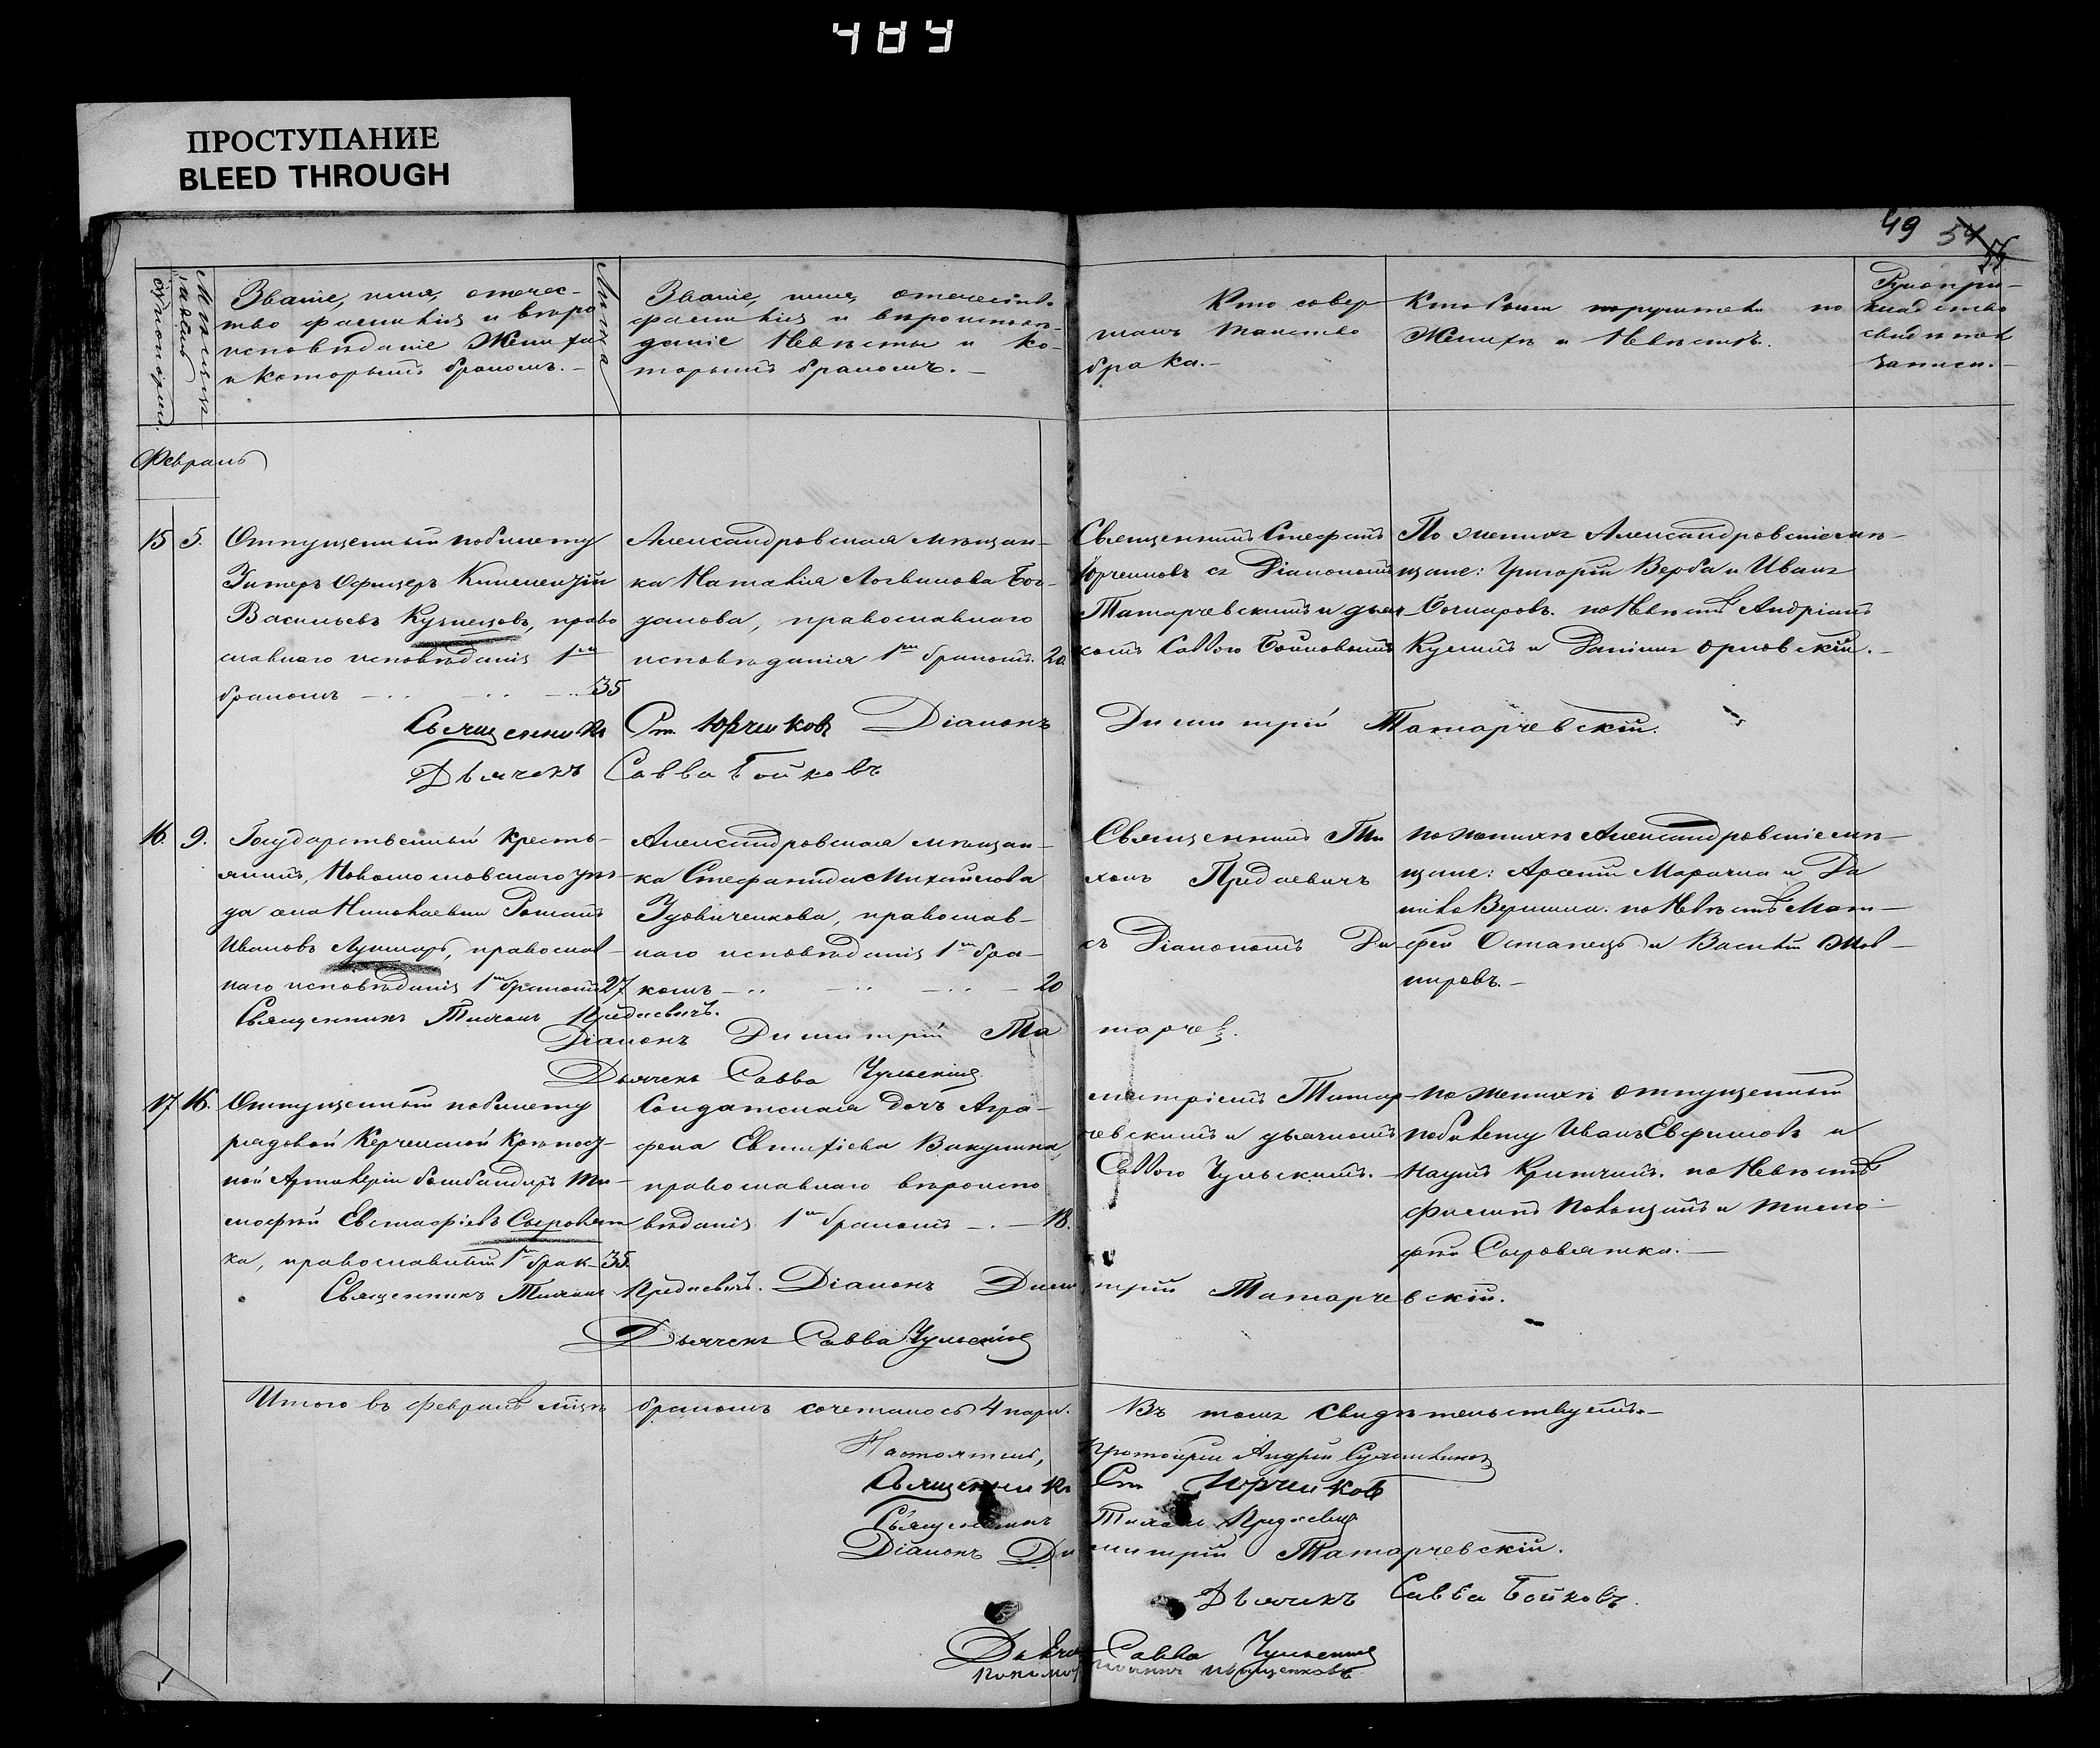 484
ПРОСТУПАНИЕ
BLEED THROUGH
49 54
Мѣсяцъ
Званіе, имя, отечес-
тво фамилія и вѣро
исповѣданіе Жениха
и которымъ бракомъ. -
Лѣта
Званіе, имя, отечество
фамилія и вѣроисповѣ-
даніе Невѣсты и ко-
торымъ бракомъ. -
Кто совер
шалъ таинство
брака. -
Кто были поручители по
Женихѣ и Невѣстѣ.
Рукопри-
кладство
свидѣтел
записи. -
Февраль
15 5. Отпущенный по билету
Унтеръ Офицеръ
Васильевъ Кузнецовъ, право
славнаго исповѣданія 1мъ
бракомъ 35
Александровская мѣщан-
ка Наталія Логвинова Бог-
данова, православнаго
исповѣданія 1мъ бракомъ. 20
Священникъ Стефанъ
Юрченковъ съ Діакономъ
Татарчевскимъ и дьяч
комъ Саввою Бойковымъ
По женихѣ Александровскіе мѣ-
щане: Григорій Верба и Иванъ
по Невѣстѣ Андріанъ
и Даніилъ Орловскій. -
Священникъ Ст. Юрченковъ Діаконъ Димитрій Татарчевскій.
Дьячекъ Савва Бойковъ
16. 9. Государственный кресть-
янинъ, Новомосковскаго уѣз-
да села Николаевки Романъ
Ивановъ Лушпарь, православ-
наго исповѣданія 1мъ бракомъ 27
Александровская мѣщан-
ка Стефанида Михайлова
Удовиченкова, православ-
наго исповѣданія 1мъ бра-
комъ 20
Священникъ Ти
хонъ Предаевичъ
съ Діакономъ Ди
по женихѣ Александровскіе мѣ-
щане: Арсеній и Да
нило по Невѣстѣ Мат-
фей Остапецъ и Василій
Священникъ Тихонъ Предаевичъ.
Діаконъ Димитрій Татарчев.
Дьячекъ Савва Чульскій
17 16. Отпущенный по билету
рядовой Керченской Крѣпост-
ной Артилеріи бомбандиръ Ти-
мофѣй Евстафіевъ Сыроват
ка, православный 1мъ брак 35.
Солдатская дочь Агра-
фена Евтихіева Вакулина,
православнаго вѣроиспо
вѣданія 1мъ бракомъ - . - 18.
митріемъ Татар
чевскимъ и дьячкомъ
Саввою Чульскимъ. -
по женихѣ отпущенный
по билету Иванъ Евфимовъ и
Наумъ по Невѣстѣ
Филипъ и Тимо-
фей Сыроватка. -
Священникъ Тихонъ Предаевичъ. Діаконъ Димитрій Татарчевскій.
Дьячекъ Савва Чульскій
Итого въ февралѣ мцѣ бракомъ сочеталось 4 пары. Въ томъ свидѣтельствуемъ. -
Настоятель, Протоіерей Андрей
Священникъ Ст. Юрченковъ
Священникъ Тихонъ Предаевичъ
Діаконъ Димитрій Татарчевскій.
Дьячекъ Савва Бойковъ.
Дьячекъ Савва Чульскій